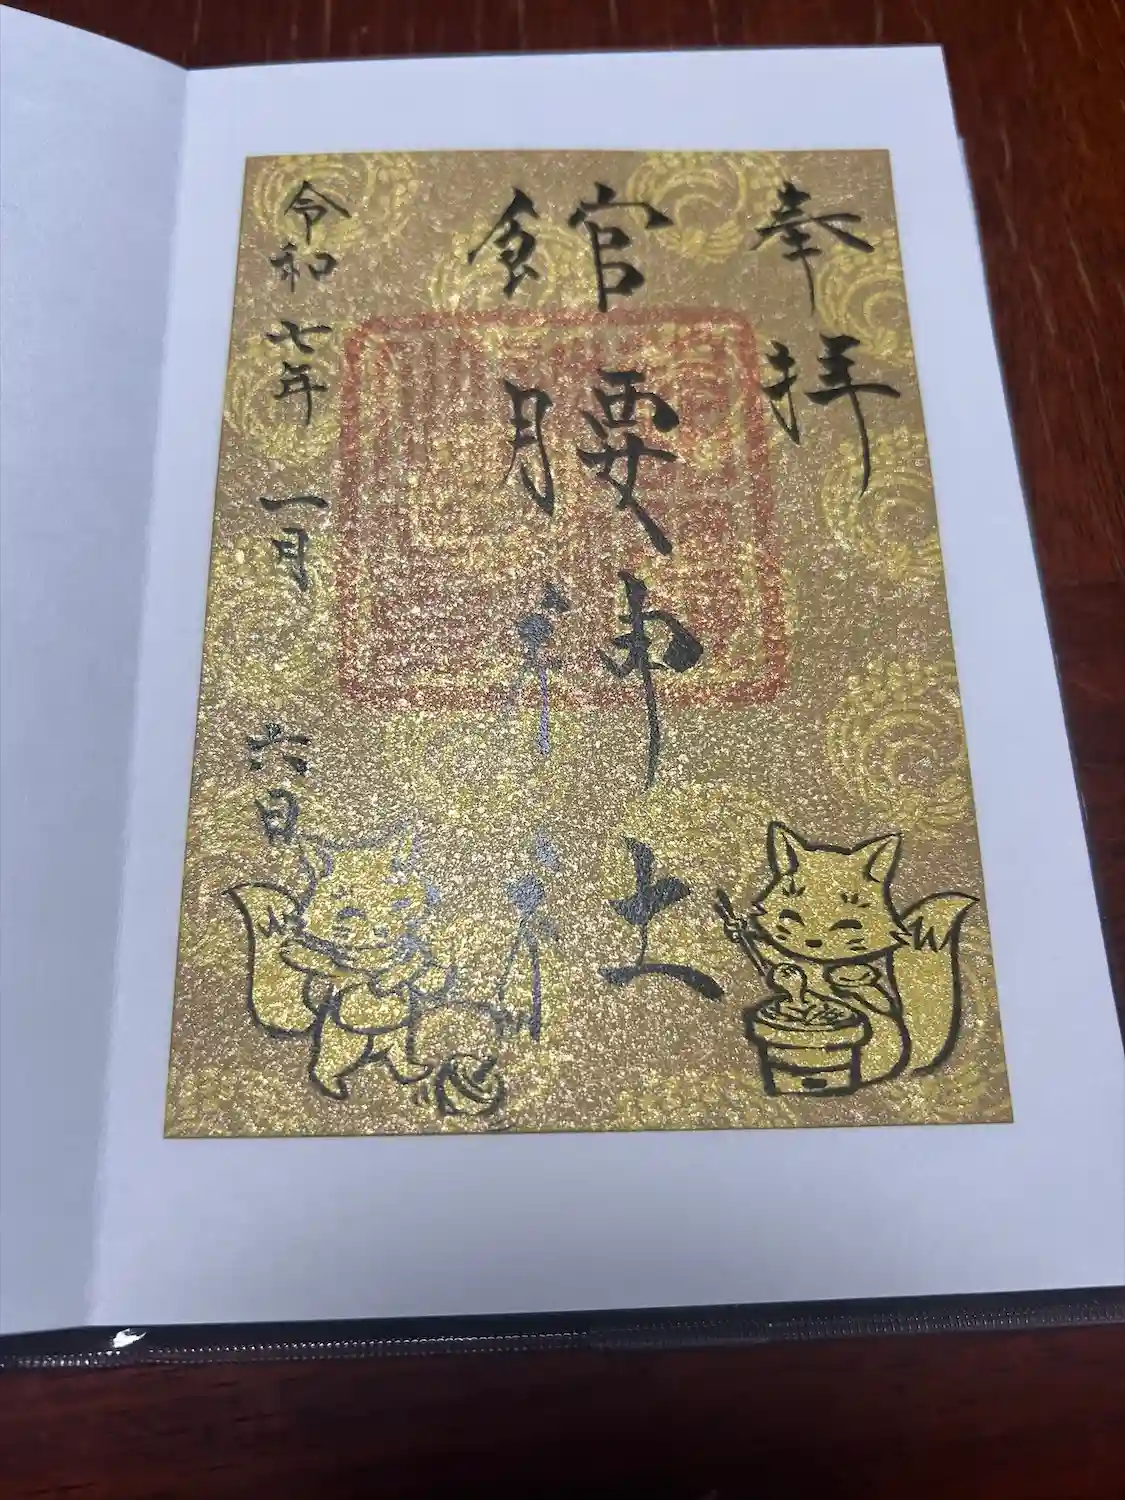 奉拝
館腰神社
令和七年一月六日